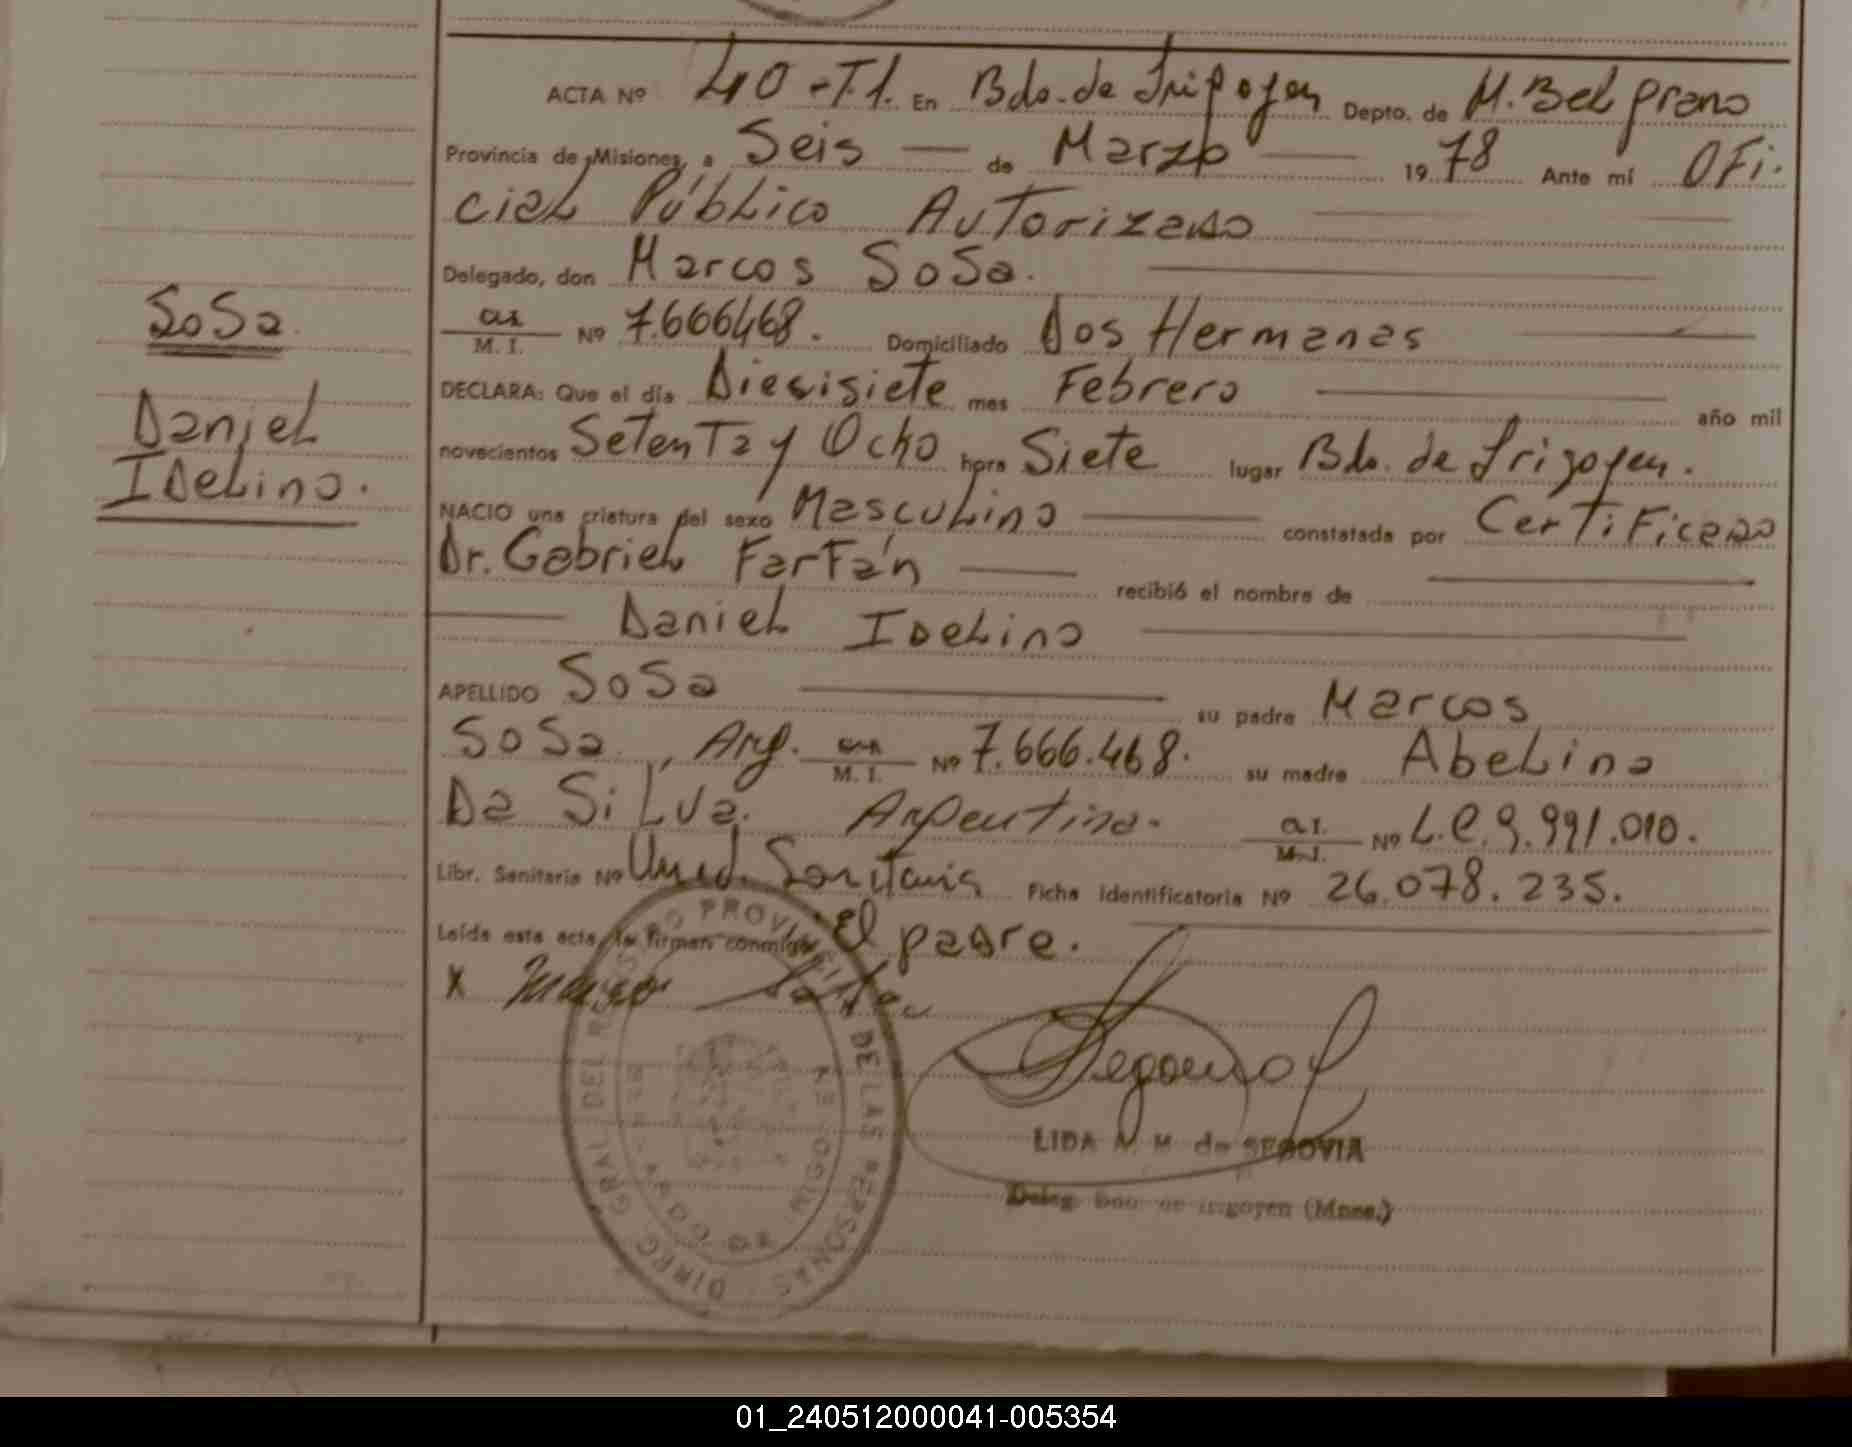 ACTA Nº 40-T.1. En Bdo. de Irigoyen Depto. de M. Belgrano
Provincia de Misiones, a Seis de Marzo 1978 Ante mí Ofi-
cial Público Autorizado
Delegado, don Marcos Sosa.
M. I. Nº 7.666468. Domiciliado Dos Hermanas
DECLARA: Que el día Diesisiete mes Febrero año mil
novecientos Setenta y Ocho hora Siete lugar Bdo. de Irigoyen.
NACIO una criatura del sexo Masculino constatada por Certificado
Dr. Gabriel Farfán recibió el nombre de
Daniel Idelino
APELLIDO Sosa su padre Marcos
Sosa, Arg. M. I. Nº 7.666.468. su madre Abelina
Da Silva. Argentina. M. I. Nº L.C. 9.991.010.
Libr. Sanitaria Nº Unid. Sanitaria Ficha Identificatoria Nº 26.078.235.
Leída esta acta, la firman conmigo El padre.
X
Sosa
Daniel
Idelino.
DIREC. GRAL. DEL REGISTRO PROVINCIAL DE LAS PERSONAS
Segovia
LIDA N. M. de SEGOVIA
Deleg. Bdo. de Irigoyen (Mnes.)
01_240512000041-005354